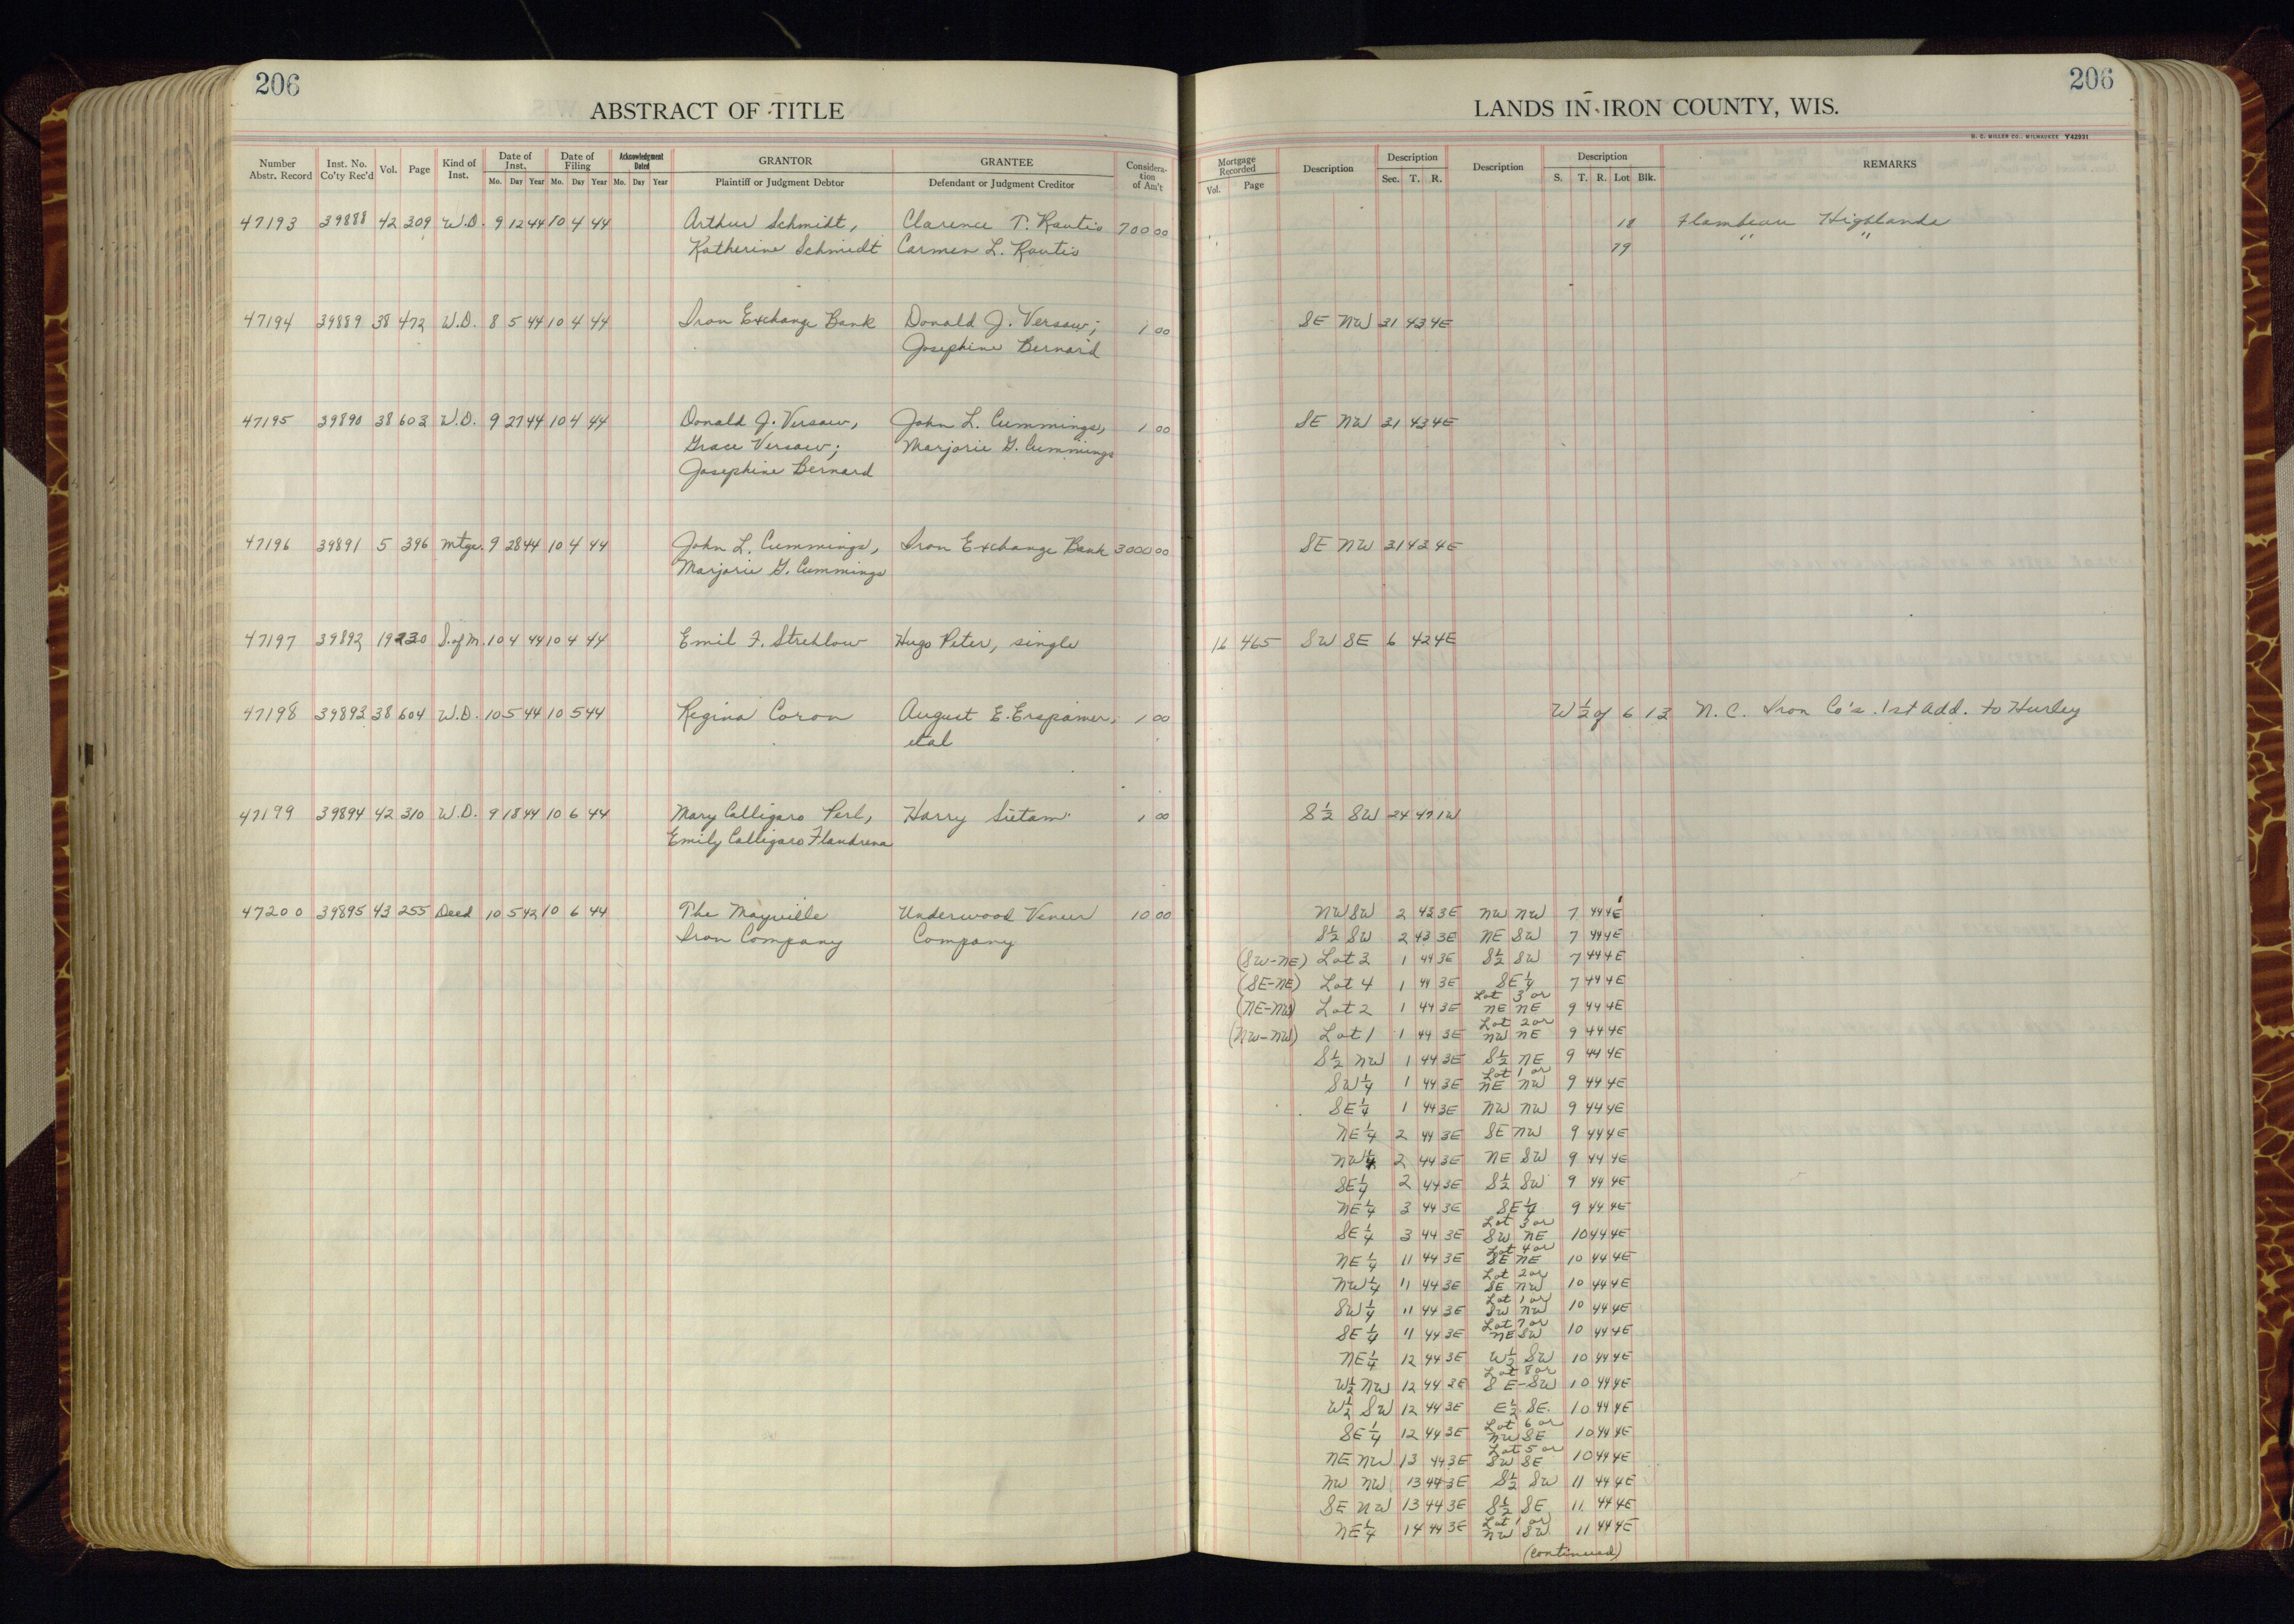 206
ABSTRACT OF TITLE
Number Abstr. Record | Inst. No. Co'ty Rec'd | Vol. | Page | Kind of Inst. | Date of Inst. Mo. Day Year | Date of Filing Mo. Day Year | Acknowledgment Dated Mo. Day Year | GRANTOR Plaintiff or Judgment Debtor | GRANTEE Defendant or Judgment Creditor | Consideration of Am't
47193 39888 42 309 W.D. 9 12 44 10 4 44 Arthur Schmidt, Clarence T. Rautis 700 00
Katherine Schmidt Carmen L. Rautis
47194 39889 38 472 W.D. 8 5 44 10 4 44 Iron Exchange Bank Donald J. Versaw; 1 00
Josephine Bernard
47195 39890 38 603 W.D. 9 27 44 10 4 44 Donald J. Versaw, John L. Cummings, 1 00
Grace Versaw; Marjorie G. Cummings
Josephine Bernard
47196 39891 5 396 Mtge. 9 28 44 10 4 44 John L. Cummings, Iron Exchange Bank 3000 00
Marjorie G. Cummings
47197 39892 19 230 S. of M. 10 4 44 10 4 44 Emil F. Strehlow Hugo Peter, single
47198 39893 38 604 W.D. 10 5 44 10 5 44 Regina Coron August E. Erspamer, 1 00
etal
47199 39894 42 310 W.D. 9 18 44 10 6 44 Mary Calligaro Perl, Harry Sietam 1 00
Emily Calligaro Flandrena
47200 39895 43 255 Deed 10 5 42 10 6 44 The Mayville Underwood Veneer 10 00
Iron Company Company
206
LANDS IN IRON COUNTY, WIS.
H. C. MILLER CO., MILWAUKEE Y42931
Mortgage Recorded Vol. Page | Description | Description Sec. T. R. | Description | Description S. T. R. Lot Blk. | REMARKS
18 Flambeau Highlands
79 " "
SE NW 31 43 4E
SE NW 31 43 4E
SE NW 31 43 4E
16 465 SW SE 6 42 4E
W½ of 6 13 N. C. Iron Co's. 1st Add. to Hurley
S½ SW 24 47 1W
NW SW 2 43 3E NW NW 7 44 4E
S½ SW 2 43 3E NE SW 7 44 4E
(SW-NE) Lot 3 1 44 3E S½ SW 7 44 4E
(SE-NE) Lot 4 1 44 3E SE¼ 7 44 4E
(NE-NW) Lot 2 1 44 3E Lot 3 or NE NE 9 44 4E
(NW-NW) Lot 1 1 44 3E Lot 2 or NW NE 9 44 4E
S½ NW 1 44 3E S½ NE 9 44 4E
SW¼ 1 44 3E Lot 1 or NE NW 9 44 4E
SE¼ 1 44 3E NW NW 9 44 4E
NE¼ 2 44 3E SE NW 9 44 4E
NW¼ 2 44 3E NE SW 9 44 4E
SE¼ 2 44 3E S½ SW 9 44 4E
NE¼ 3 44 3E SE¼ 9 44 4E
SE¼ 3 44 3E Lot 3 or SW NE 10 44 4E
NE¼ 11 44 3E Lot 4 or SE NE 10 44 4E
NW¼ 11 44 3E Lot 2 or SE NW 10 44 4E
SW¼ 11 44 3E Lot 1 or SW NW 10 44 4E
SE¼ 11 44 3E Lot 7 or NE SW 10 44 4E
NE¼ 12 44 3E W½ SW 10 44 4E
W½ NW 12 44 3E Lot 8 or SE-SW 10 44 4E
W½ SW 12 44 3E E½ SE. 10 44 4E
SE¼ 12 44 3E Lot 6 or NW SE 10 44 4E
NE NW 13 44 3E Lot 5 or SW SE 10 44 4E
NW NW 13 44 3E S½ SW 11 44 4E
SE NW 13 44 3E S½ SE 11 44 4E
NE¼ 14 44 3E Lot 1 or NW SW 11 44 4E
(continued)